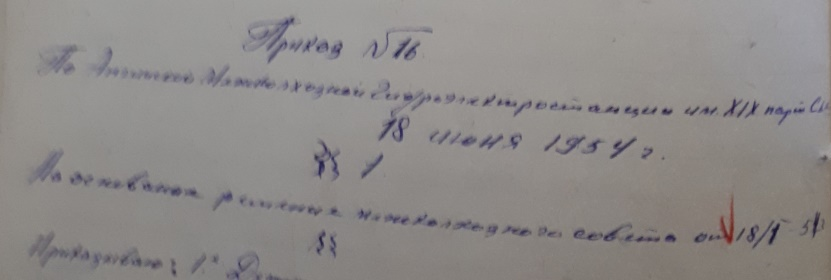 Приказ №16
По Межколхозной Гидроэлектростанции им. XIX парт
18 июня 1954 г.
§§ 1
На основании решения межколхозного совета от 18/
§§
Приказываю: 1.